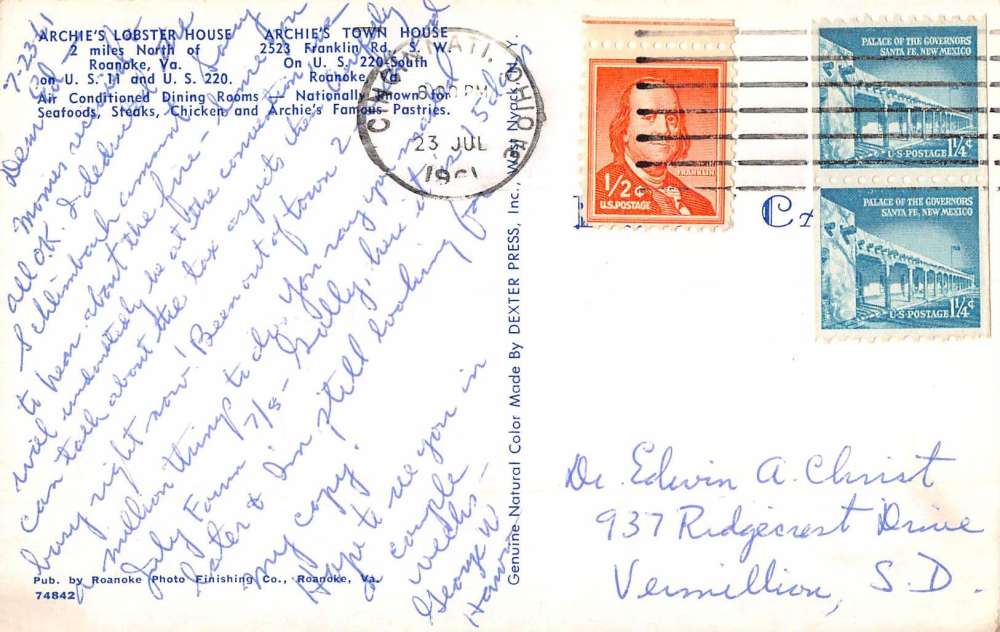 ARCHIE'S LOBSTER HOUSE
2 miles North of
Roanoke, Va.
on U. S. 11 and U. S. 220.
ARCHIE'S TOWN HOUSE
2523 Franklin Rd., S. W.
On U. S. 220-South
Roanoke, Va.
Air Conditioned Dining Rooms — Nationally Known for
Seafoods, Steaks, Chicken and Archie's Famous Pastries.
7-23-61
Dear Ed —
Monies received
all O.K. I deducted the
Schlimbach commitment. Sorry
to hear about the fire - Someone
will undoubtedly be at the convention who
can talk about the tax aspects there. Awfully
busy right now! Been out of town 2
million things to do. You say you mailed
July Form 7/8 - Golly, here it is 15 days
later & I'm still looking for
my copy.
Hope to see you in
a couple
weeks -
George W
CINCINNATI, OHIO
8:00 PM
23 JUL
1961
1/2¢
U.S. POSTAGE
FRANKLIN
PALACE OF THE GOVERNORS
SANTA FE, NEW MEXICO
U·S·POSTAGE 1¼¢
PALACE OF THE GOVERNORS
SANTA FE, NEW MEXICO
U·S·POSTAGE 1¼¢
Dr. Edwin A. Christ
937 Ridgecrest Drive
Vermillion, S. D.
Genuine Natural Color Made By DEXTER PRESS, Inc., West Nyack, N. Y.
Pub. by Roanoke Photo Finishing Co., Roanoke, Va.
74842